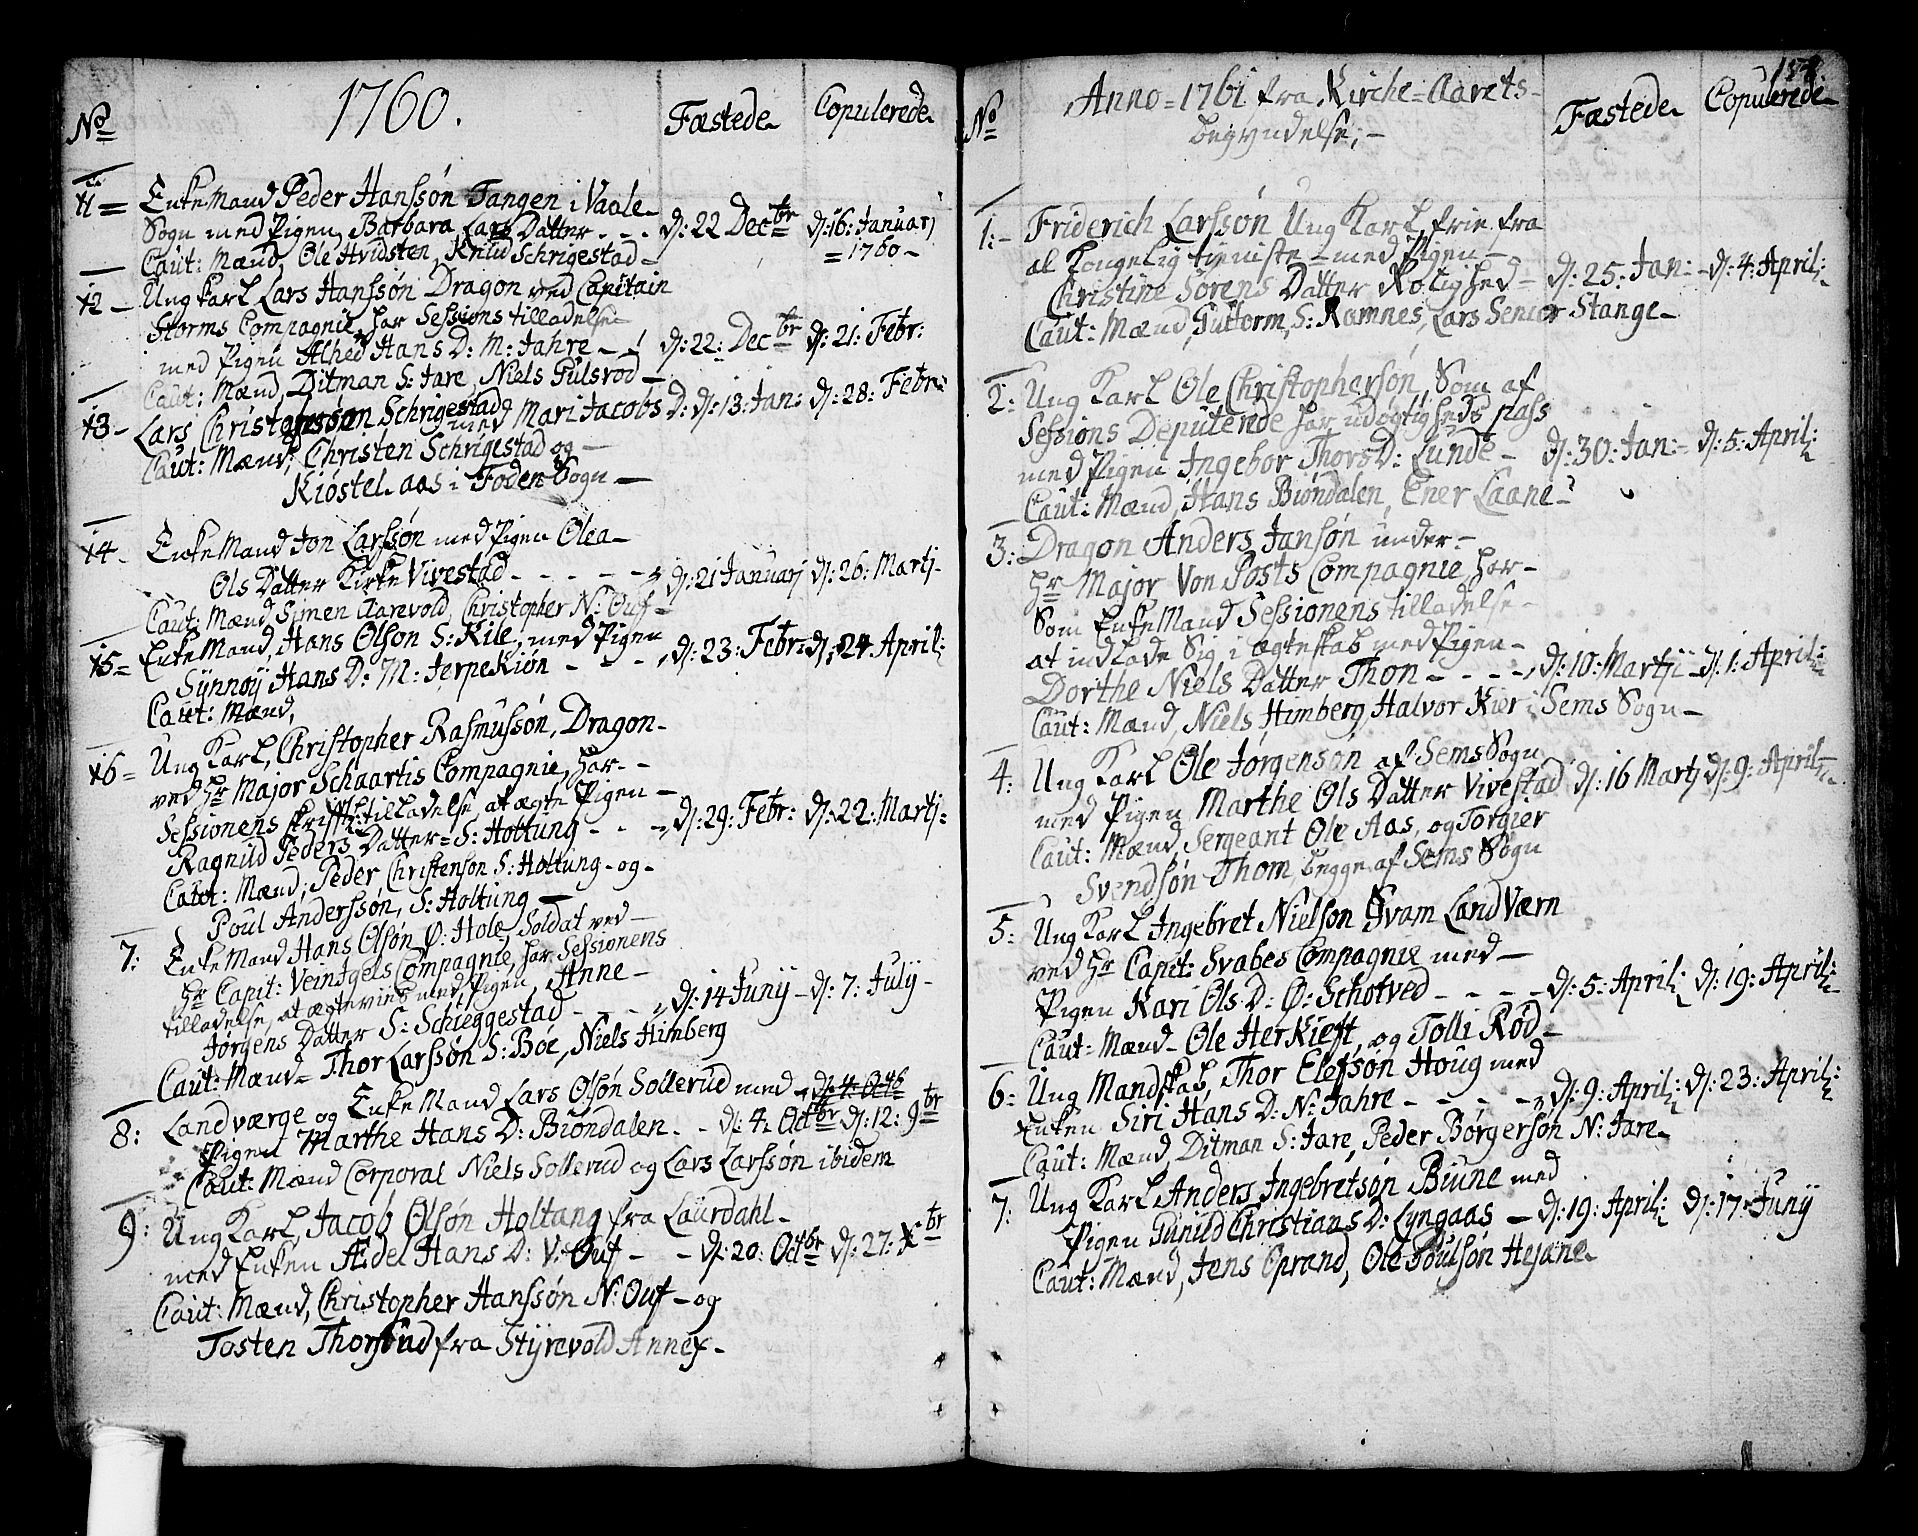 1760.
No
Fæstede
Copulerede
Enke Mand Peder Hanssøn Tangen i Vaale
Sogn med Pigen, Barbara Lars Datter - - -
d: 22 Decbr
d: 16: Januarj
= 1760 -
Caut: Mænd, Ole Hvidsten, Knud Schrigestad -
Ung Karl Lars Hanssøn Dragon ved Capitain
Storms Compagnie, har Sessions tilladelse
med Pigen Alhed Hans D: M: Jahre - -
d: 22: Decbr
d: 21: Febr:
Caut: Mænd, Ditman S: Jare, Niels Gulsrod -
Lars Schrigestad med Mari Jacobs D:
d: 13: Jan:
d: 28: Febr:
Caut: Mænd, Christen Schrigestad og -
Kiøstel aas i Foden Sogn -
Enke Mand Jon Larssøn med Pigen Olea -
Ols Datter Kirke Vivestad - - - - -
d: 21 Januarj
d: 26: Martj -
Caut: Mænd Simen Aarevold, Christopher N: Ouf -
Enke Mand, Hans Olson S: Kile, med Pigen
d: 23: Febr:
d: 24 April:
Synnøy Hans D: M: Jerpekiøn - - -
Caut: Mænd,
Ung Karl, Christopher Rasmussøn, Dragon -
ved Hr Major Schaartis Compagnie, har - -
Sessionens skriftl: tilladelse, at ægte Pigen -
Ragnild Peders Datter = S: Holtung - - -
d: 29: Febr:
d: 22: Martj:
Caut: Mænd; Peder Christenson S: Holtung - og -
Poul Anderssøn, S: Holtung -
7:
Enke Mand Hans Olsøn Ø: Hole, Soldat ved -
Hr Capit: Veintgels Compagnie, har Sessionens
tilladelse, at ægtevies med Pigen, Anne -
Jørgens Datter S: Schieggestad - - -
d: 14 Juny -
d: 7: July -
Caut: Mænd = Thor Larssøn S: Bøe, Niels Himberg
8:
Landværge og Enke Mand Lars Olsøn Sollerud med
Pigen Marthe Hans D: Biøndalen - -
d: 4. Octbr
d: 12: 9br
Caut: Mænd Corporal Niels Sollerud og Lars Larssøn ibidem
9:
Ung Karl, Jacob Olsøn Holtang fra Laurdahl -
med Enken Ædel Hans D: V: Ouf - -
d: 20: Octbr
d: 27: Xbr
Caut: Mænd, Christopher Hanssøn N: Ouf - og
Tosten fra Styrevold Annex -
158.
No
Anno = 1761 fra Kirche = Aarets -
begyndelse; -
Fæstede
Copulerede
1: -
Friderich Larssøn Ung Karl, frie fra
al Kongelig tieniste - med Pigen -
Christine Sørens Datter Rolighed -
d: 25: Jan: -
d: 4: April:
Caut: Mænd, Guttorm, S: Ramnes, Lars Senior Stange -
2:
Ung Karl Ole Christophersøn, Som af
Sessions Deputerede har udøgtigheds pass
med Pigen Ingebor Thors D: Lunde -
d: 30: Jan: -
d: 5: April:
Caut: Mænd, Hans Biøndalen, Ener Laane -
3:
Dragon Anders Jansøn under -
Hr Major Von Posts Compagnie, har -
Som Enke Mand Sessionens tilladelse -
at indlade Sig i ægteskab med Pigen -
Dorthe Niels Datter Thon - - - -
d: 10: Martji -
d: 1: April:
Caut: Mænd, Niels Himberg, Halvor Kier i Sems Sogn -
4:
Ung Karl Ole Jørgenson af Sems Sogn
med Pigen Marthe Ols Datter Vivestad
d: 16 Martj
d: 9: April:
Caut: Mænd, Sergeant Ole Aas, og Torgier
Svendsøn Thom begge af Sems Sogn
5:
Ung Karl Ingebret Nielson Hvam Land Værn
ved Hr Capit: Svabes Compagnie med -
Pigen Kari Ols D: Ø: Schotved - - - -
d: 5: April:
d: 19: April:
Caut: Mænd - Ole Herkieft, og Tolli Rød -
6:
Ung Mandskab, Thor Elefsøn Houg med
Enken Siri Hans D: N: Jahre - - - -
d: 9: April:
d: 23: April:
Caut: Mænd, Ditman S: Jare, Peder Børgerson N: Jare -
7:
Ung Karl Anders Ingebretsøn Biune med
Pigen Gunild Christians D: Lyngaas -
d: 19: April:
d: 17: Juny
Caut: Mænd, Jens Eprand, Ole Poulsøn Hejane -